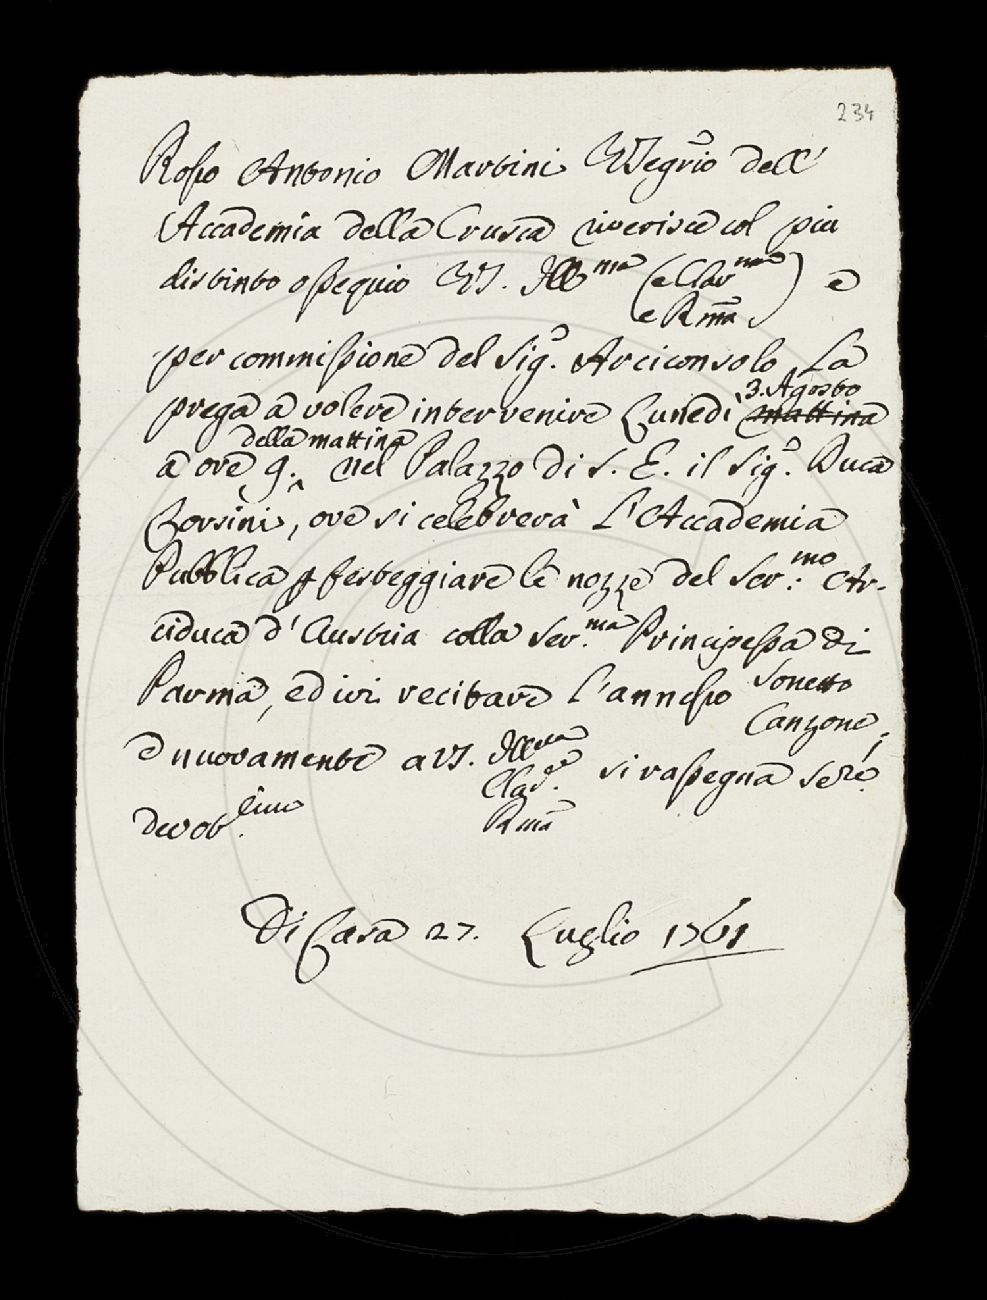 234
Rosso Antonio Martini Segrio dell'
Accademia della Crusca riverisce col piu
distinto ossequio V.S. Ill.ma (e Clar.ma) e
e Rma
per commissione del Sig.e Arciconsolo La
3. Agosto
prega a volere intervenire Lunedi mattina
della mattina
a ore 9. nel Palazzo di S. E. il Sig.e Duca
Corsini, ove si celebrerà l'Accademia
Pubblica p festeggiare le nozze del Ser.mo Ar-
ciduca d'Austria colla Ser.ma Principessa di
Parma, ed ivi recitare l'annesso Sonetto
Canzone;
e nuovamente a VS. Ill.ma
Clar. si rassegna
Rma
devob
Di Casa 27. Luglio 1761